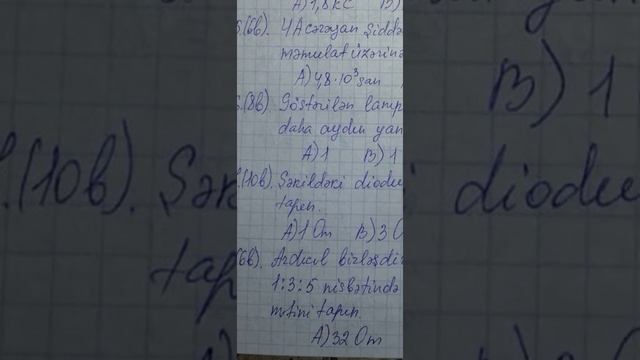 A) 1,8 kC B)
5.(6b). 4A cərəyan şiddə
məmulat üzərinə
A) 4,8·10³ san
(8b). Göstərilən lamp
daha aydın yan
A) 1 B) 1
(10b). Şəkildəki diodu
tapın.
A) 1 Om B) 3 O
(6b). Ardıcıl birləşdi
1:3:5 nisbətində
mətini tapın.
A) 32 Om
B) 1
.(10b). Şək diodu
tap